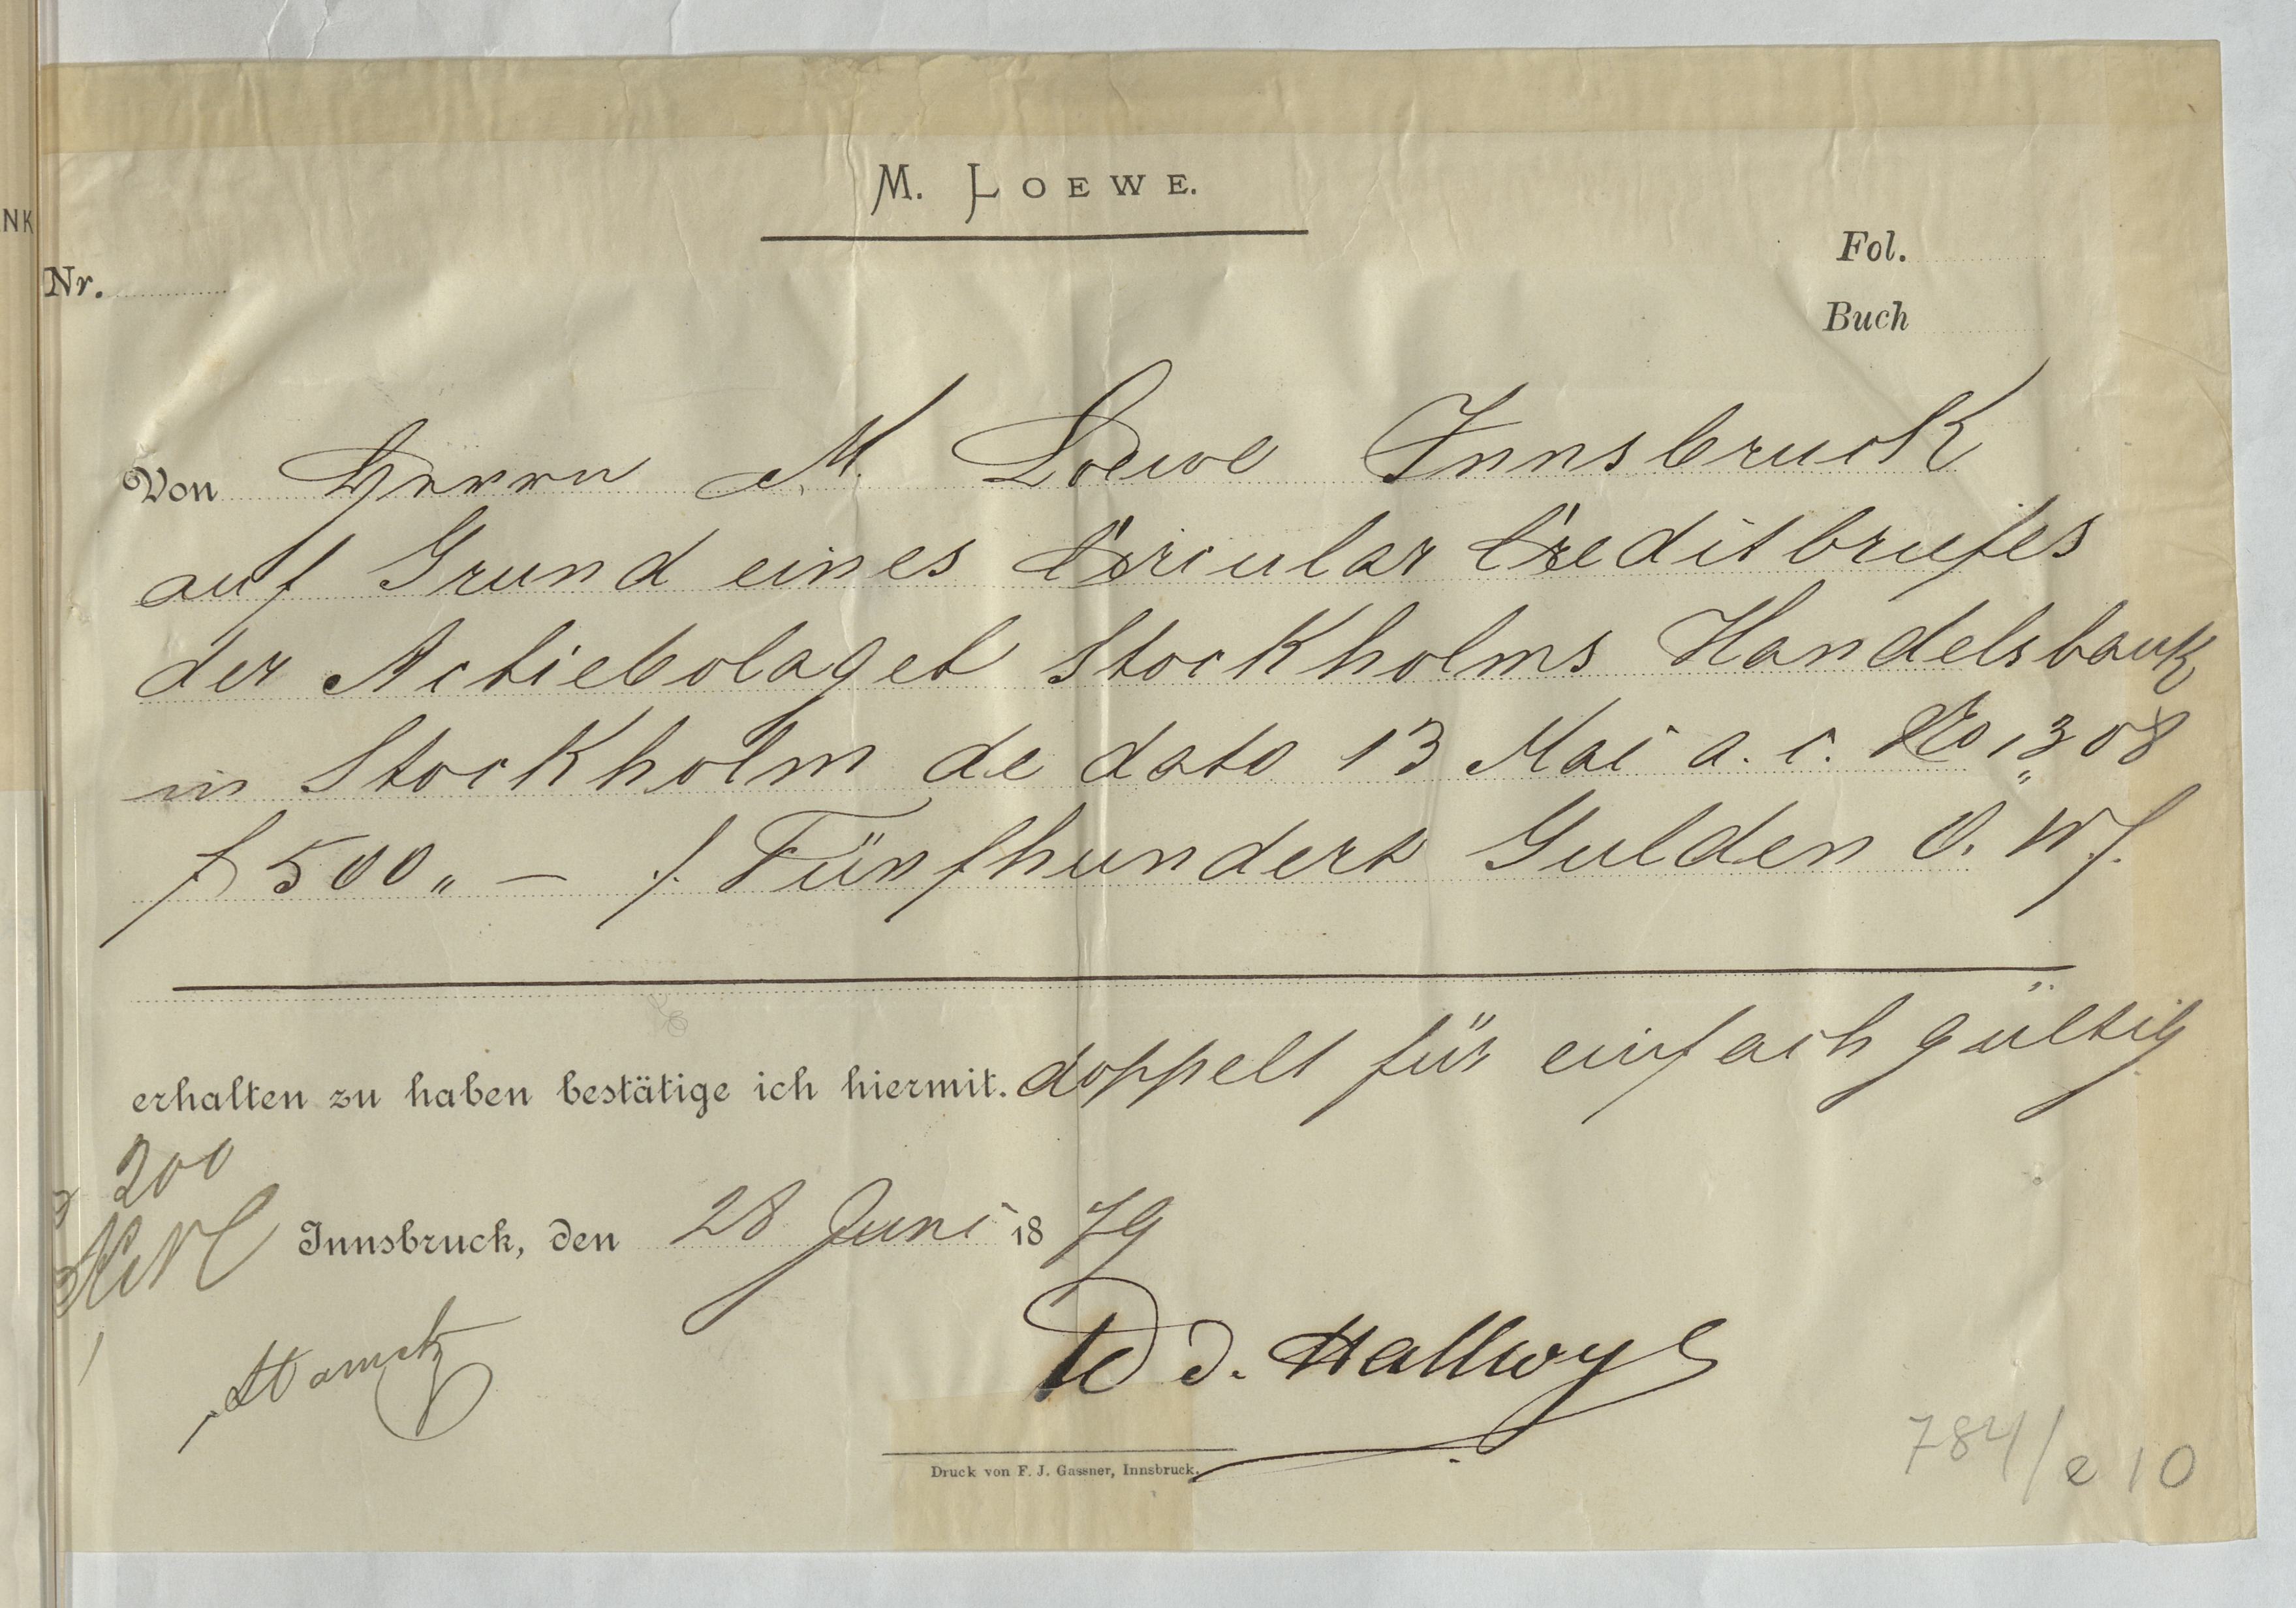 NK
M. LOEWE.
Fol.
Nr.
Buch
Von Herrn M. Loewe Innsbruck
auf Grund eines Circular Creditbriefes
der Actiebolaget Stockholms Handelsbank
in Stockholm de dato 13 Mai a. c. No 1308
f 500 „ — /. Fünfhundert Gulden Ö. W /.
erhalten zu haben bestätige ich hiermit. doppelt für einfach gültig
200
Innsbruck, den 28 Juni 1879
W v. Hallwyl
Druck von F. J. Gassner, Innsbruck.
784/e 10